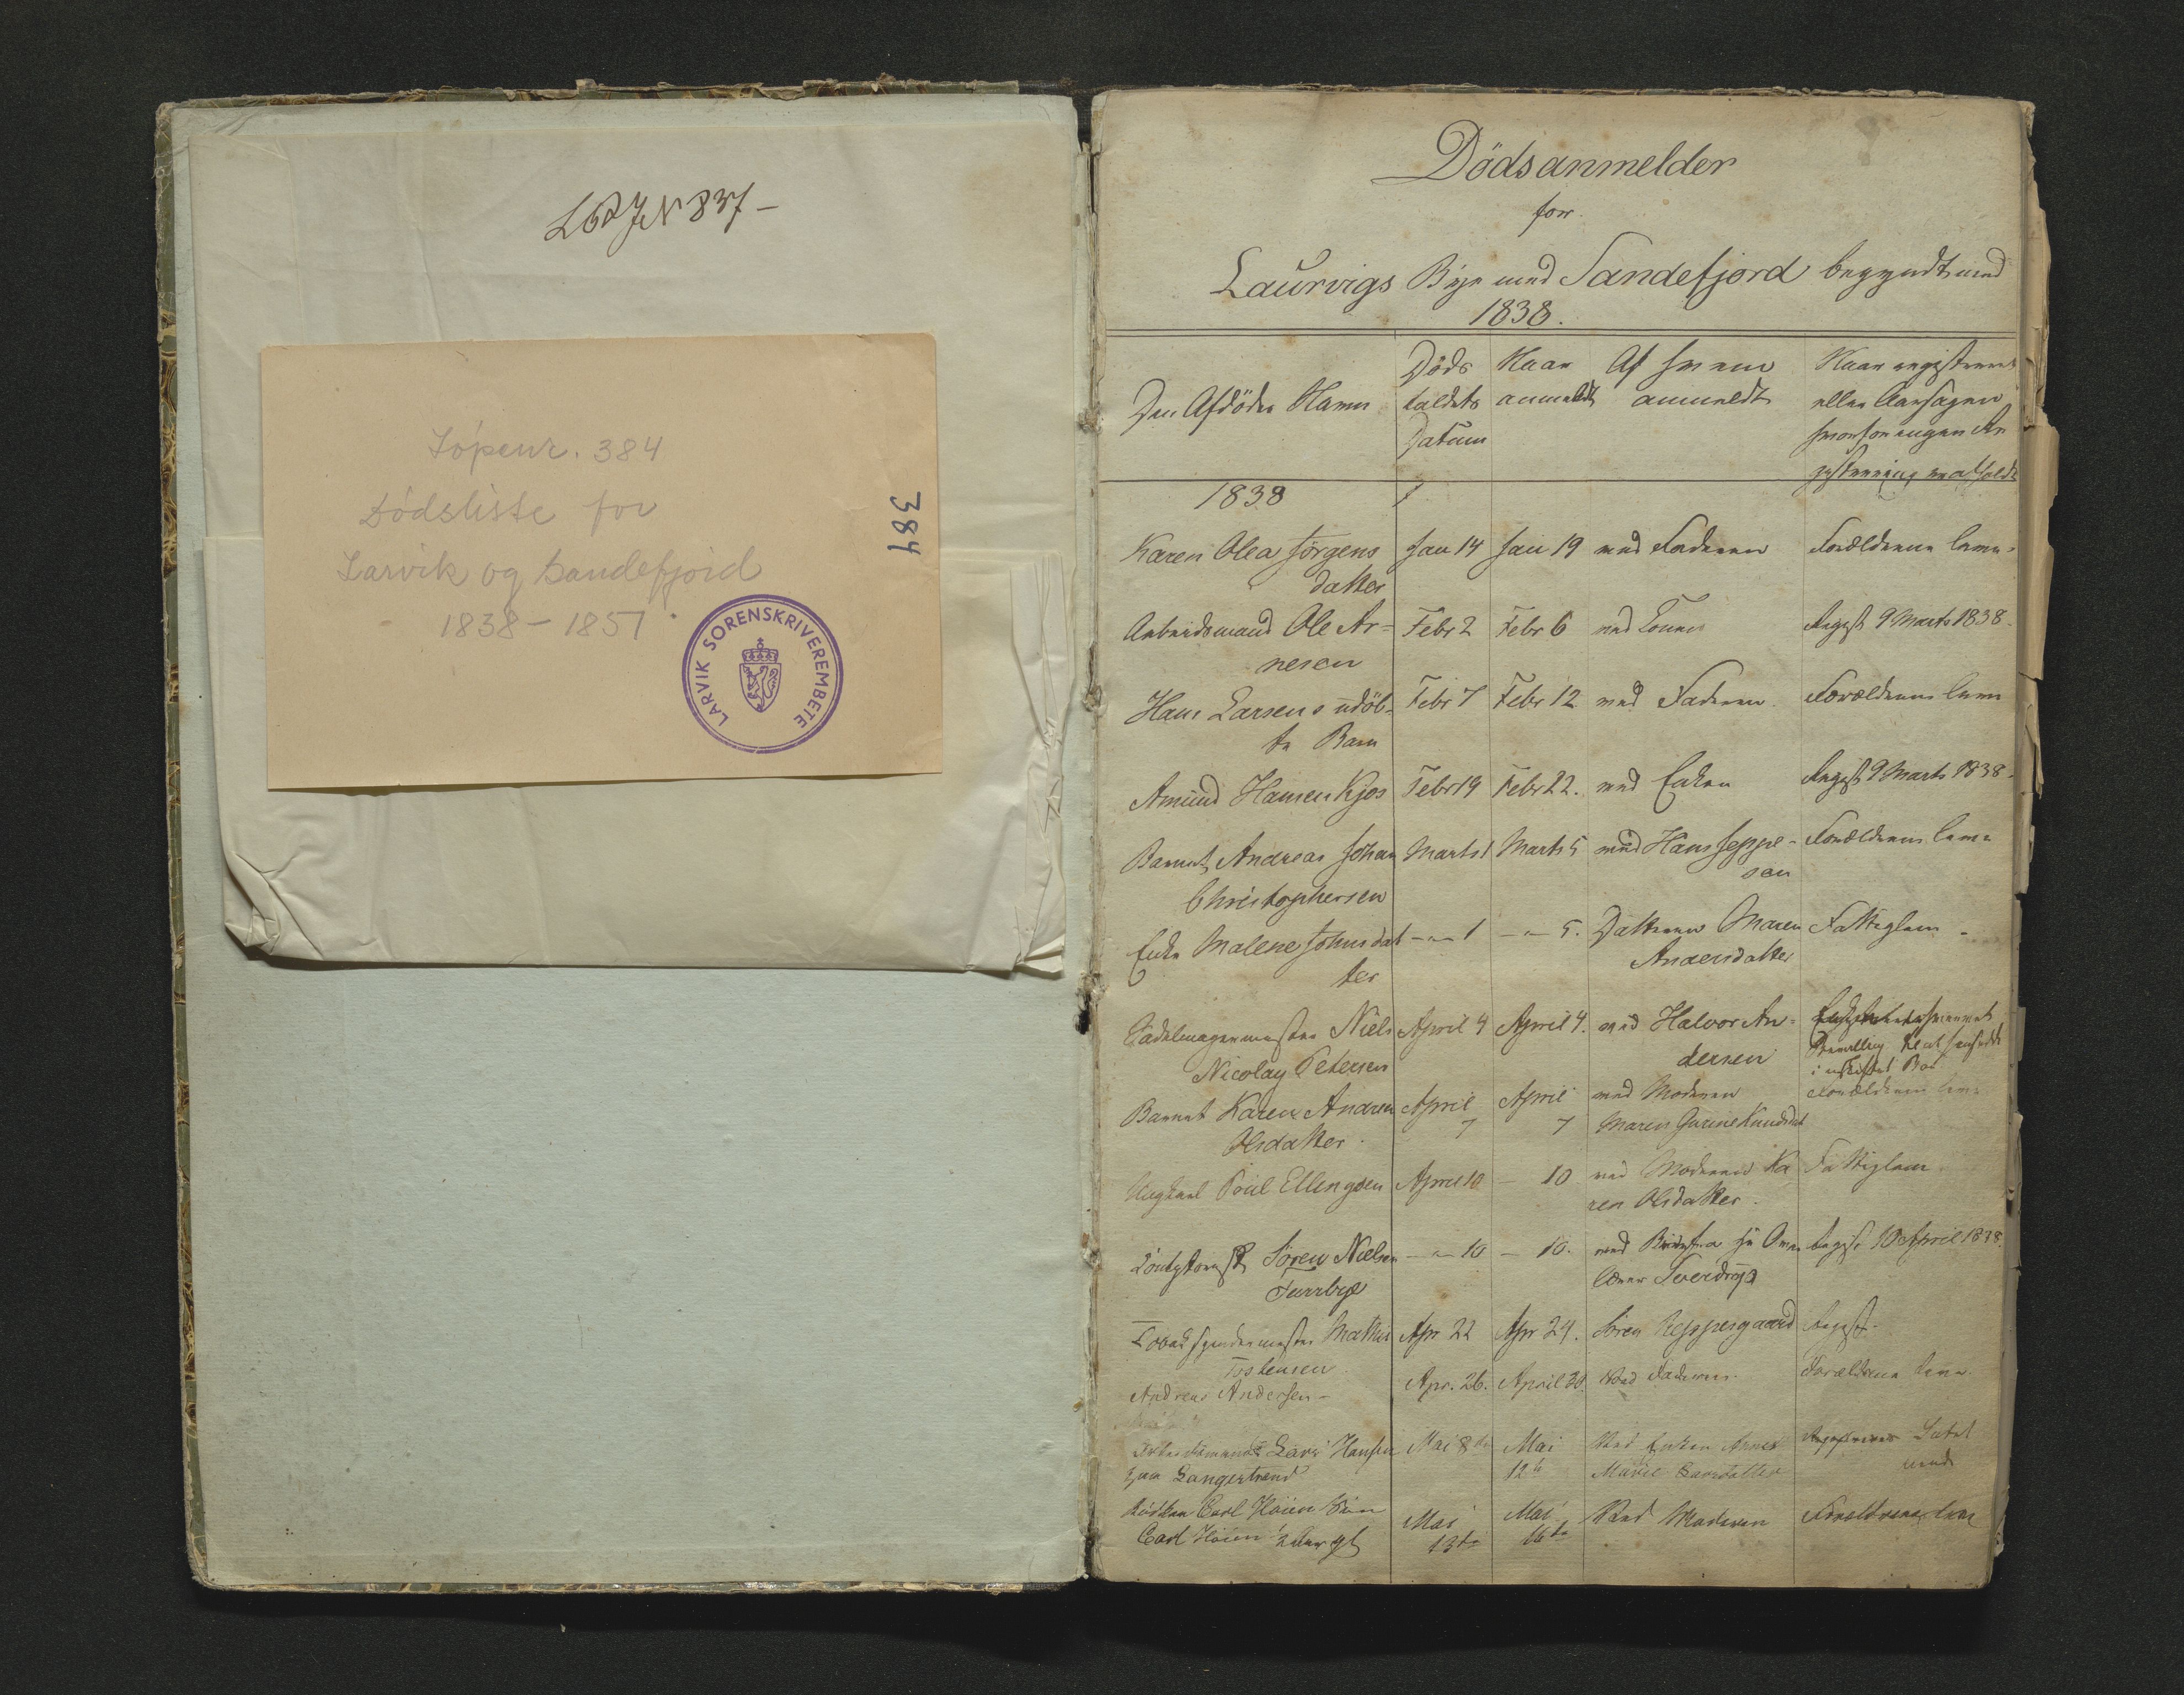 L6d J N 837 -
Löpenr. 384
Dödsliste for
Larvik og Sandefjord
1838 - 1851
384
LARVIK SORENSKRIVEREMBETE
Dödsanmelder
for
Laurvigs Bye med Sandefjord begyndt med
1838.
Den Afdödes Navn
Döds
faldets
Datum
Naar
anmeldt
Af hvem
anmeldt
Naar registreret
eller Aarsagen
hvorfor ingen Re
gistrering er afholdt
1838
Karen Olea Jörgens
datter
Jan 14 Jan 19 ved Faderen Forældrene leve.
Arbeidsmand Ole Ar=
nesen
Febr 2 Febr 6 ved Regist 9 Marts 1838.
Hans Larsens udöb=
te Barn
Febr 7 Febr 12 ved Faderen Forældrene leve
Amund Hansen Kjos Febr 19 Febr 22. ved Enken Regist 9 Marts 1838.
Barnet Andreas Johan
Christophersen
Marts 1 Marts 5 ved Hans Jeppe-
sen
Forældrene leve
Enke Malene Johnsdat
ter
- " - 1 - " - 5. Datteren Maren
Andersdatter
Fattiglem.
Sadelmagermester Niels
Nicolay Petersen
April 4 April 4. ved Halvor An=
dersen
Bevilling til at hensidde
i uskiftet Bo
Barnet Karen Andrea
Olsdatter.
April
7
April
7
ved Moderen
Maren Gurine Knudsdat
Forældrene leve
Ungkarl Poul Ellingsen April 10 - 10 ved Moderen Ka
ren Olsdatter.
Fattiglem
Sören Nielsen
Furrbye
- " - 10 - 10. ved
regist 10 April 1838.
Mathis
Tostensen
Apr 22 Apr 24. Sören Jeppesgaard regist.
Andreas Andersen - Apr. 26. April 30. Ved Faderen. Forældrene leve.
Arbeidsmand Lars Hansen
paa Langestrand
Mai 8de Mai
12te
Ved Enken Anne
Marie Larsdatter
Intet
Carl Höien Sön
Carl Höien 1/2 Aar gl
Mai
13de
Mai
16de
Ved Moderen Forældrene leve